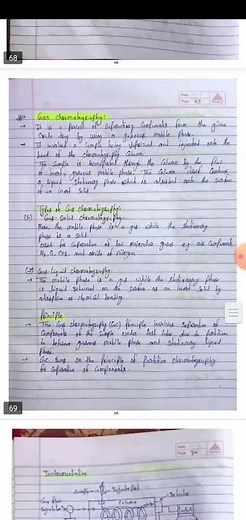 68
Gas chromatography:-
→ It is a process of separating compounds from the given
by using a gaseous mobile phase.
→ It involves a sample being vaporized and injected onto the
head of the chromatography column.
The sample is transported through the column by the flow
of inert, gaseous mobile phase. The column itself contains
a liquid stationary phase which is adsorbed onto the surface
of an inert solid
Types of Gas chromatography:
(1) Gas-Solid chromatography:
Here the mobile phase is a gas while the stationary
phase is a solid.
Used for separation of low molecular gases e.g. air components
and oxide of nitrogen
Gas-liquid chromatography:
The mobile phase is a gas while the stationary phase
is liquid retained on the surface as an inert solid by
adsorption or chemical bonding.
Principle
→ The Gas chromatography (GC) principle involves separation of
components of the sample under test due to partition
in between gaseous mobile phase and stationary liquid
phase.
→ GC runs on the principle of partition chromatography
for separation of components.
69
Instrumentation
Column